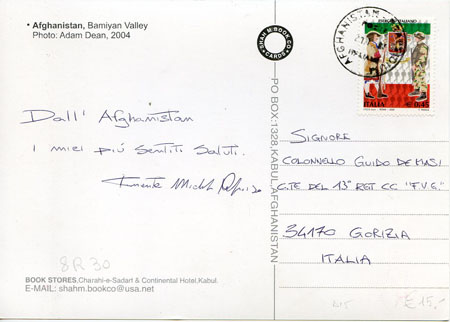 • Afghanistan, Bamiyan Valley
Photo: Adam Dean, 2004
SHAH M BOOK CO
CARDS
PO BOX:1328,KABUL,AFGHANISTAN
AFGHANISTAN
ESERCITO ITALIANO
ITALIA €0,45
Dall' Afghanistan
i miei più sentiti saluti.
Michele
SIGNORE
COLONNELLO GUIDO DE MASI
C.TE DEL 13° RGT. CC "F.V.G."
34170 GORIZIA
ITALIA
8R30
BOOK STORES,Charahi-e-Sadart & Continental Hotel,Kabul.
E-MAIL: shahm.bookco@usa.net
€ 15,-